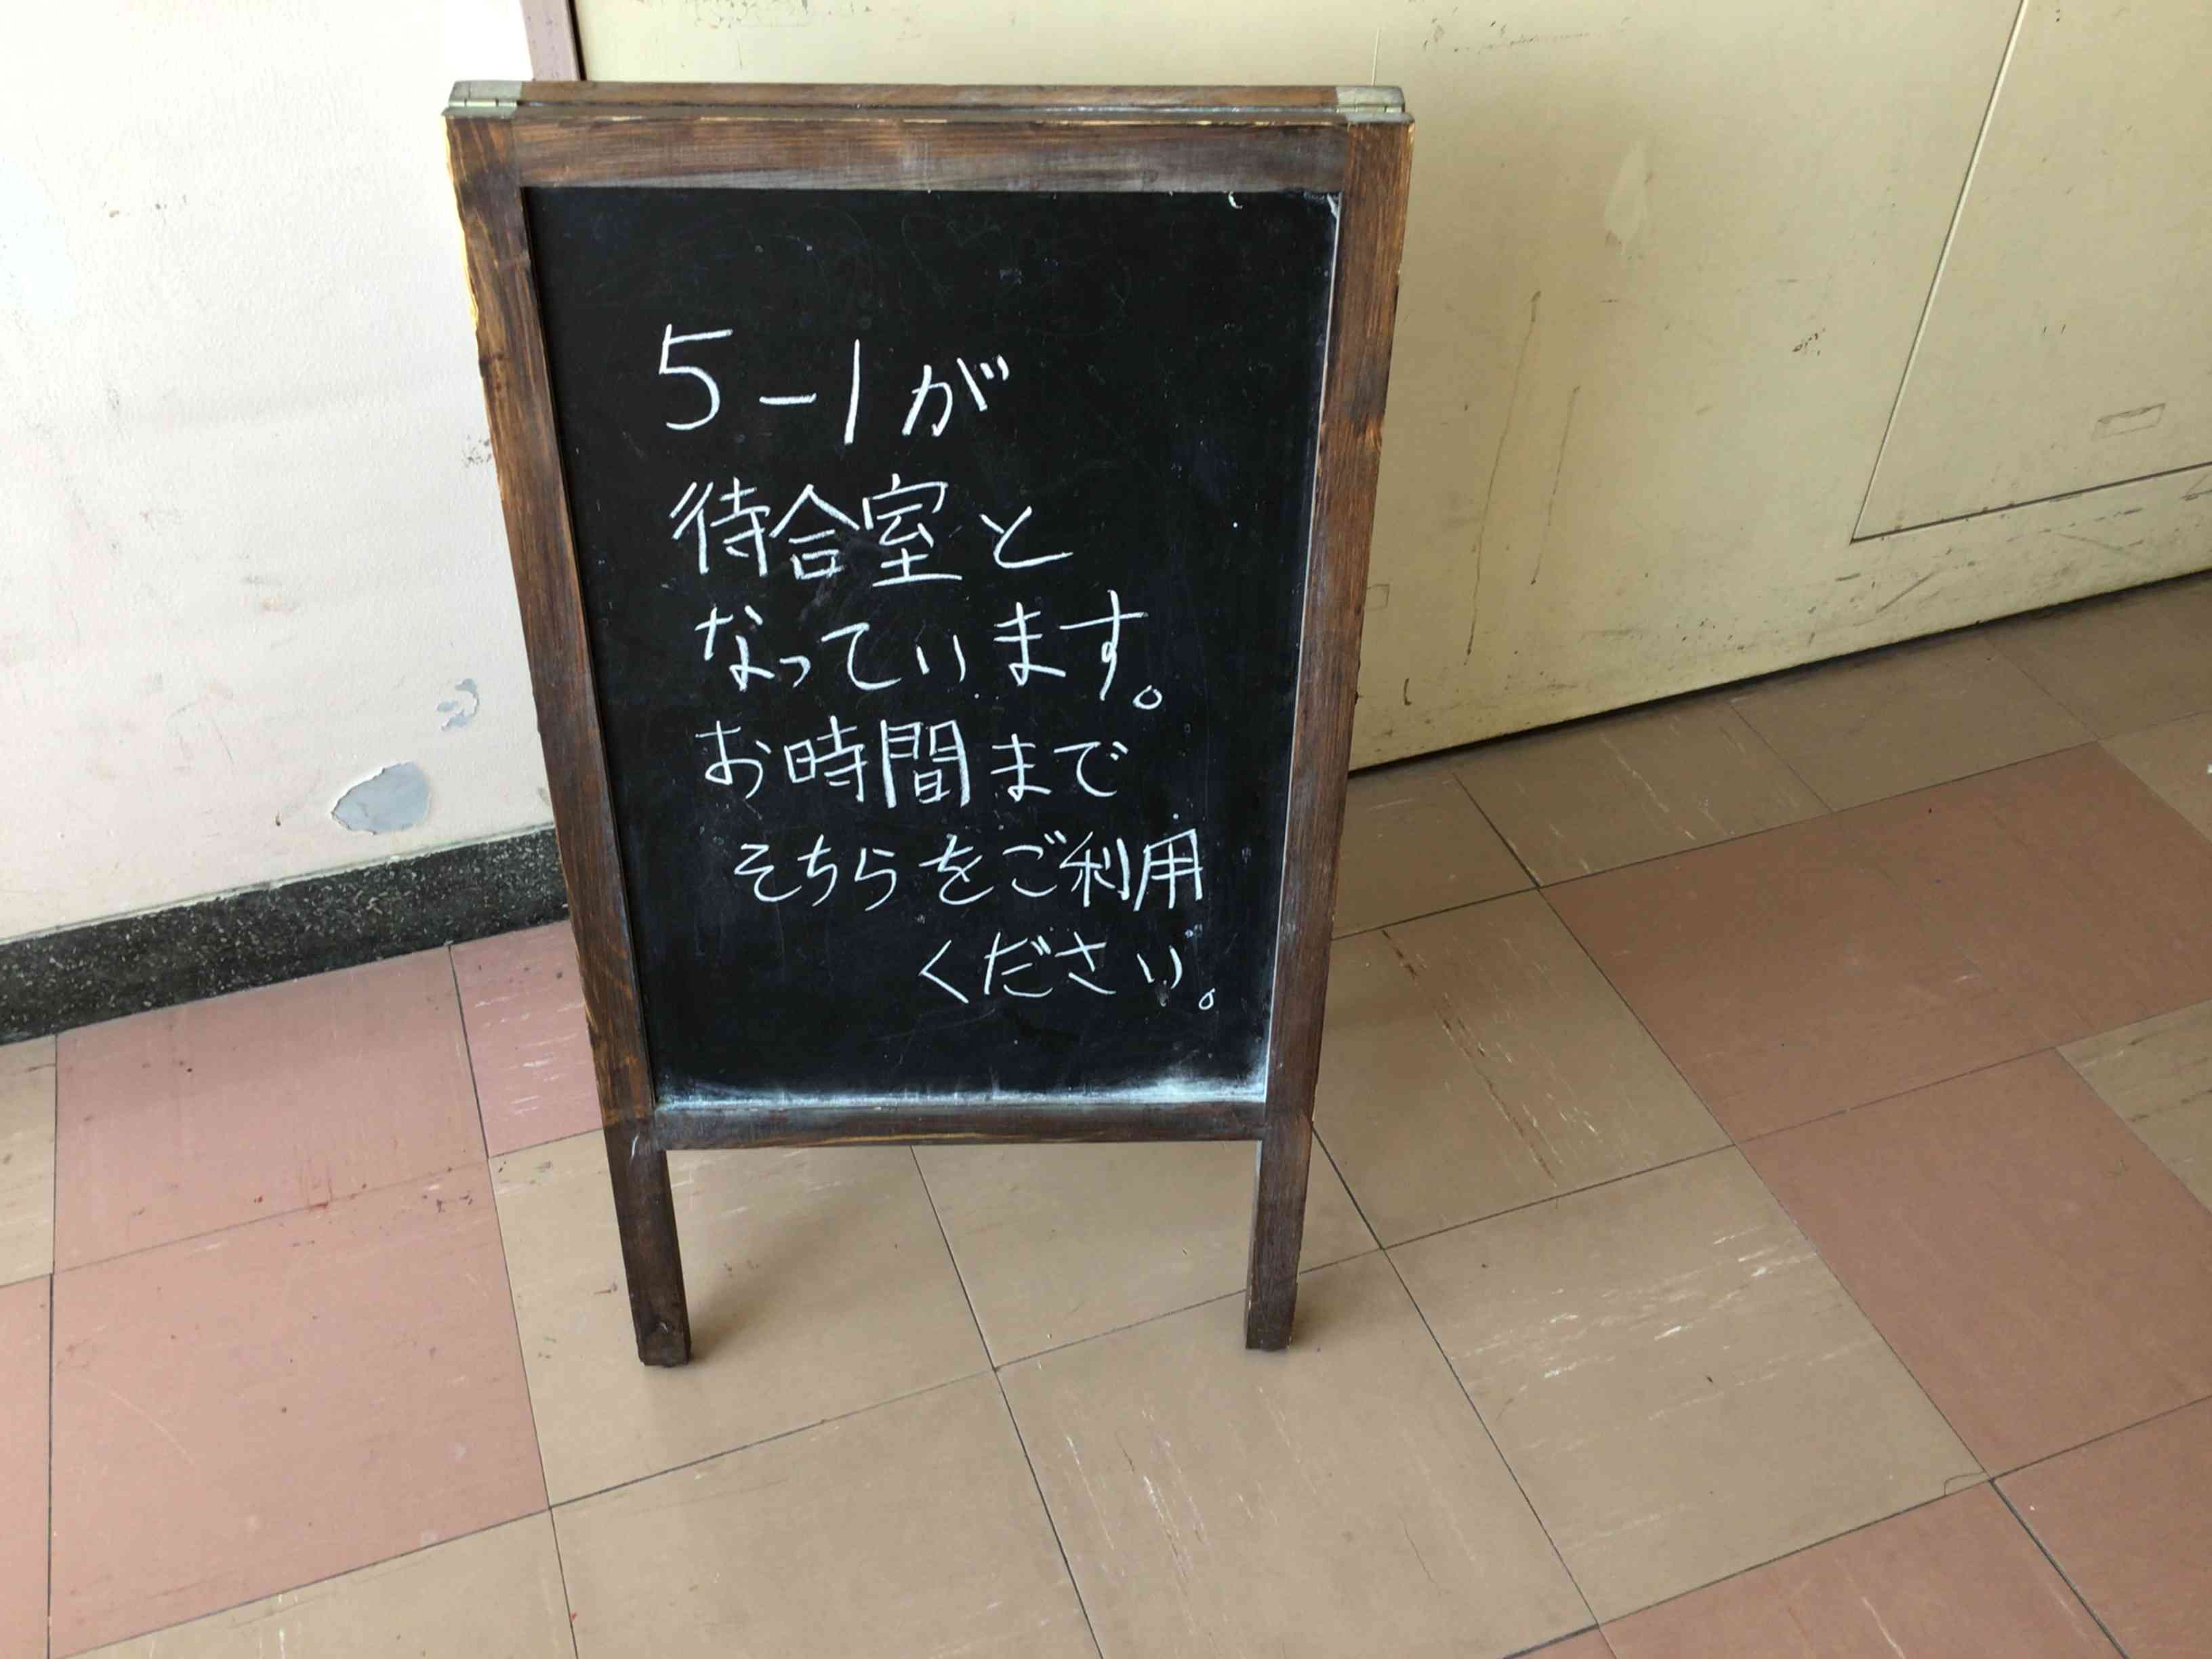 5-1が
待合室と
なっています。
お時間まで
そちらをご利用
ください。